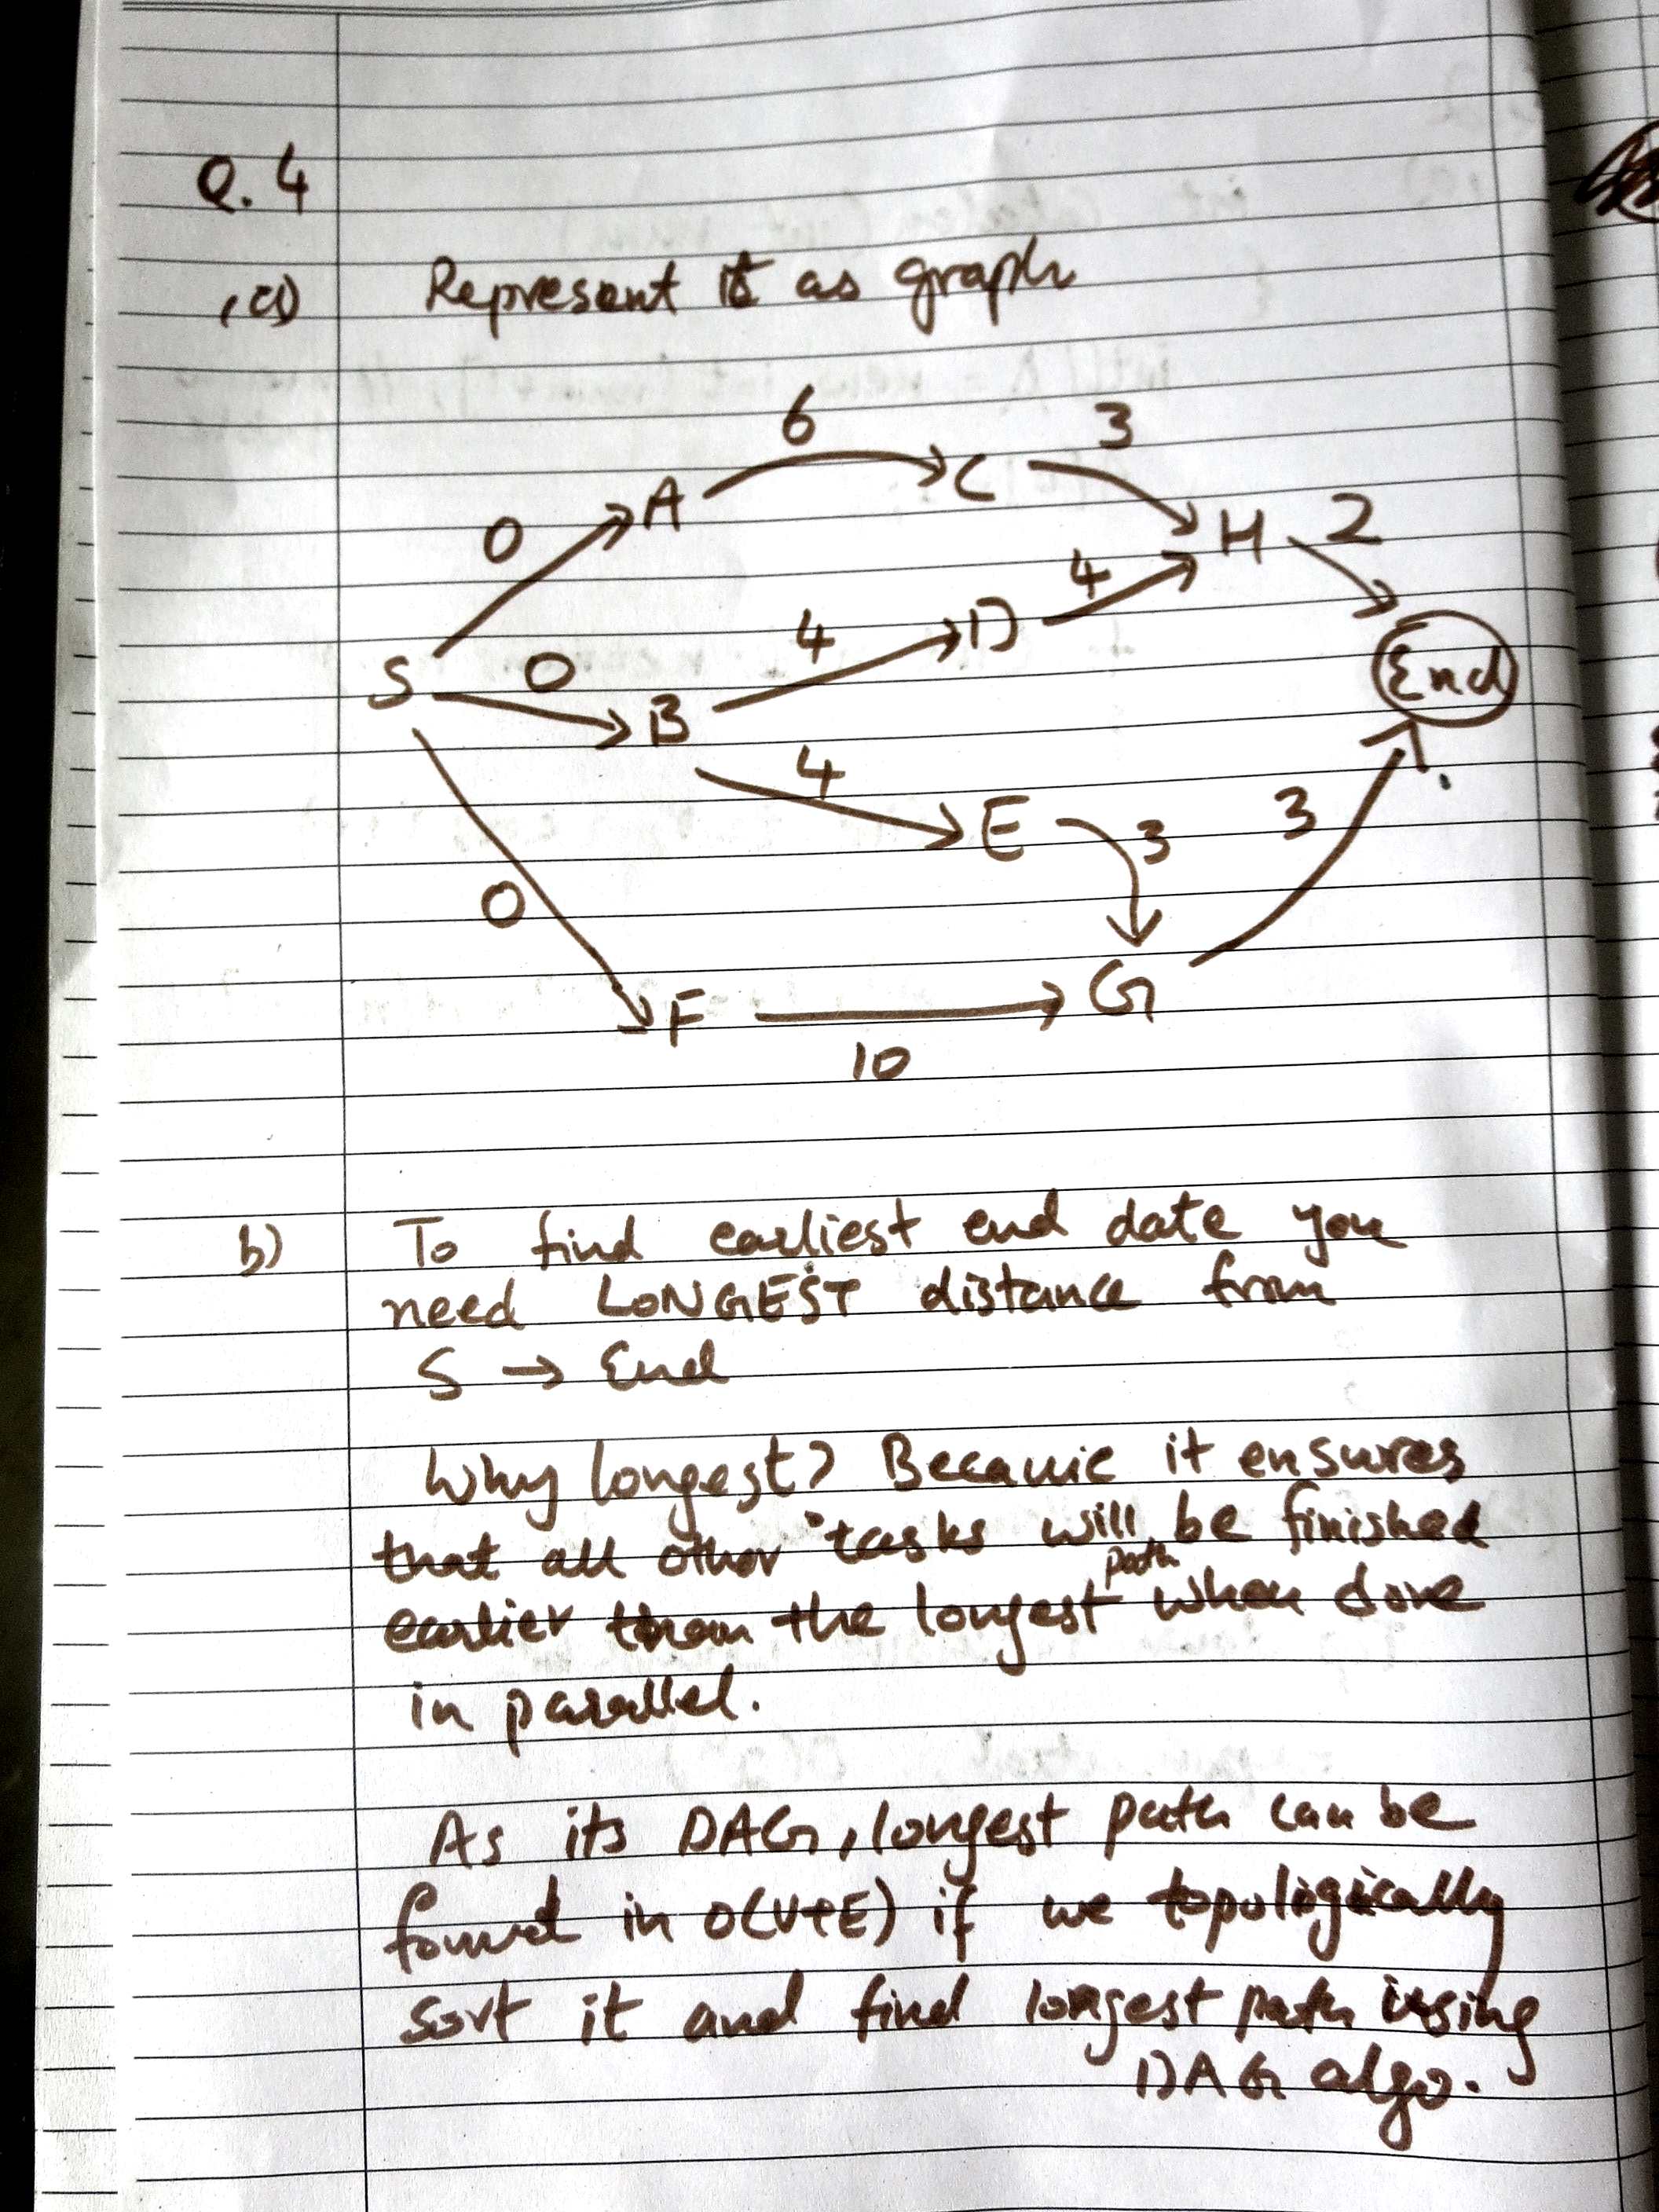 Q. 4
(a) Represent it as graph
6 3
A C
0 H 2
4
4 D
S 0 End
B
4
E 3 3
0
F G
10
b) To find earliest end date you
need LONGEST distance from
S → End
Why longest? Because it ensures
that all other tasks will be finished
earlier than the longest path when done
in parallel.
As its DAG, longest path can be
found in O(V+E) if we topologically
sort it and find longest path using
DAG algo.